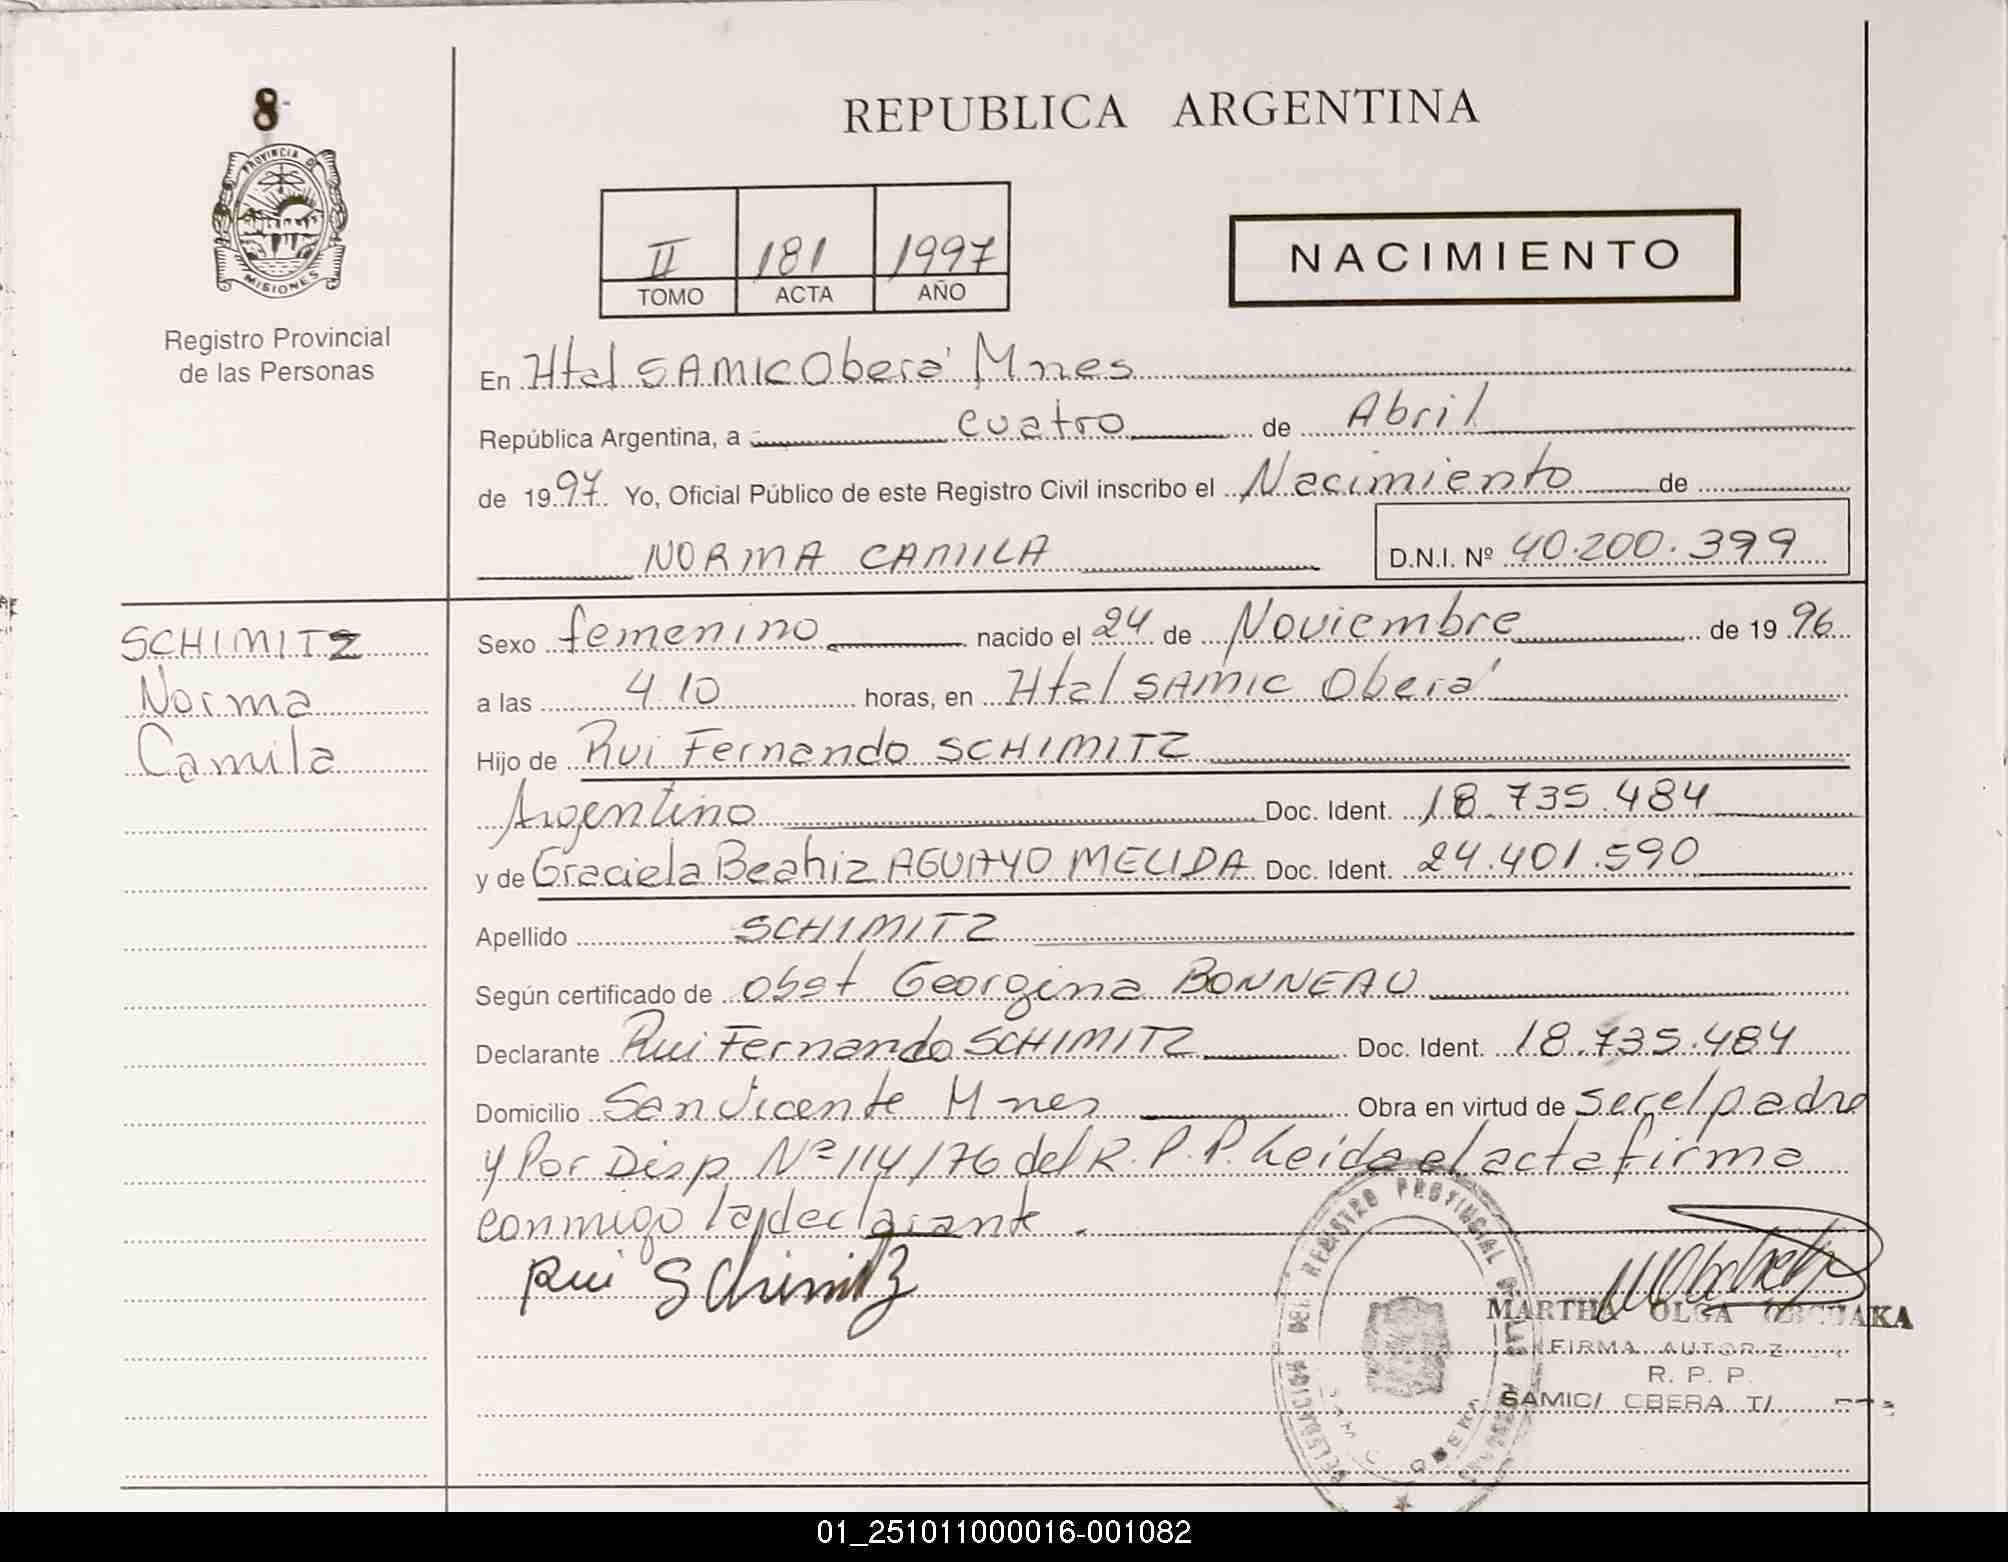 8
REPUBLICA ARGENTINA
PROVINCIA DE
MISIONES
II 181 1997
TOMO ACTA AÑO
NACIMIENTO
Registro Provincial
de las Personas
En Htal SAMIC Oberá Mnes
República Argentina, a cuatro de Abril
de 1997. Yo, Oficial Público de este Registro Civil inscribo el Nacimiento de
NORMA CAMILA D.N.I. Nº 40.200.399
SCHIMITZ
Norma
Camila
Sexo femenino nacido el 24 de Noviembre de 1996
a las 4 10 horas, en Htal SAMIC Oberá
Hijo de Rui Fernando SCHIMITZ
Argentino Doc. Ident. 18.735.484
y de Graciela Beatriz AGUAYO MELIDA Doc. Ident. 24.401.590
Apellido SCHIMITZ
Según certificado de obst Georgina BONNEAU
Declarante Rui Fernando SCHIMITZ Doc. Ident. 18.735.484
Domicilio San Vicente Mnes Obra en virtud de ser el padre
y Por Disp Nº 114/76 del R.P.P. Leida el acta firma
conmigo la declarante.
Rui Schimitz
REGISTRO PROVINCIAL DE LAS
MARTHA OLGA
FIRMA AUTORIZ
R. P. P.
SAMIC/ OBERA T/
01_251011000016-001082